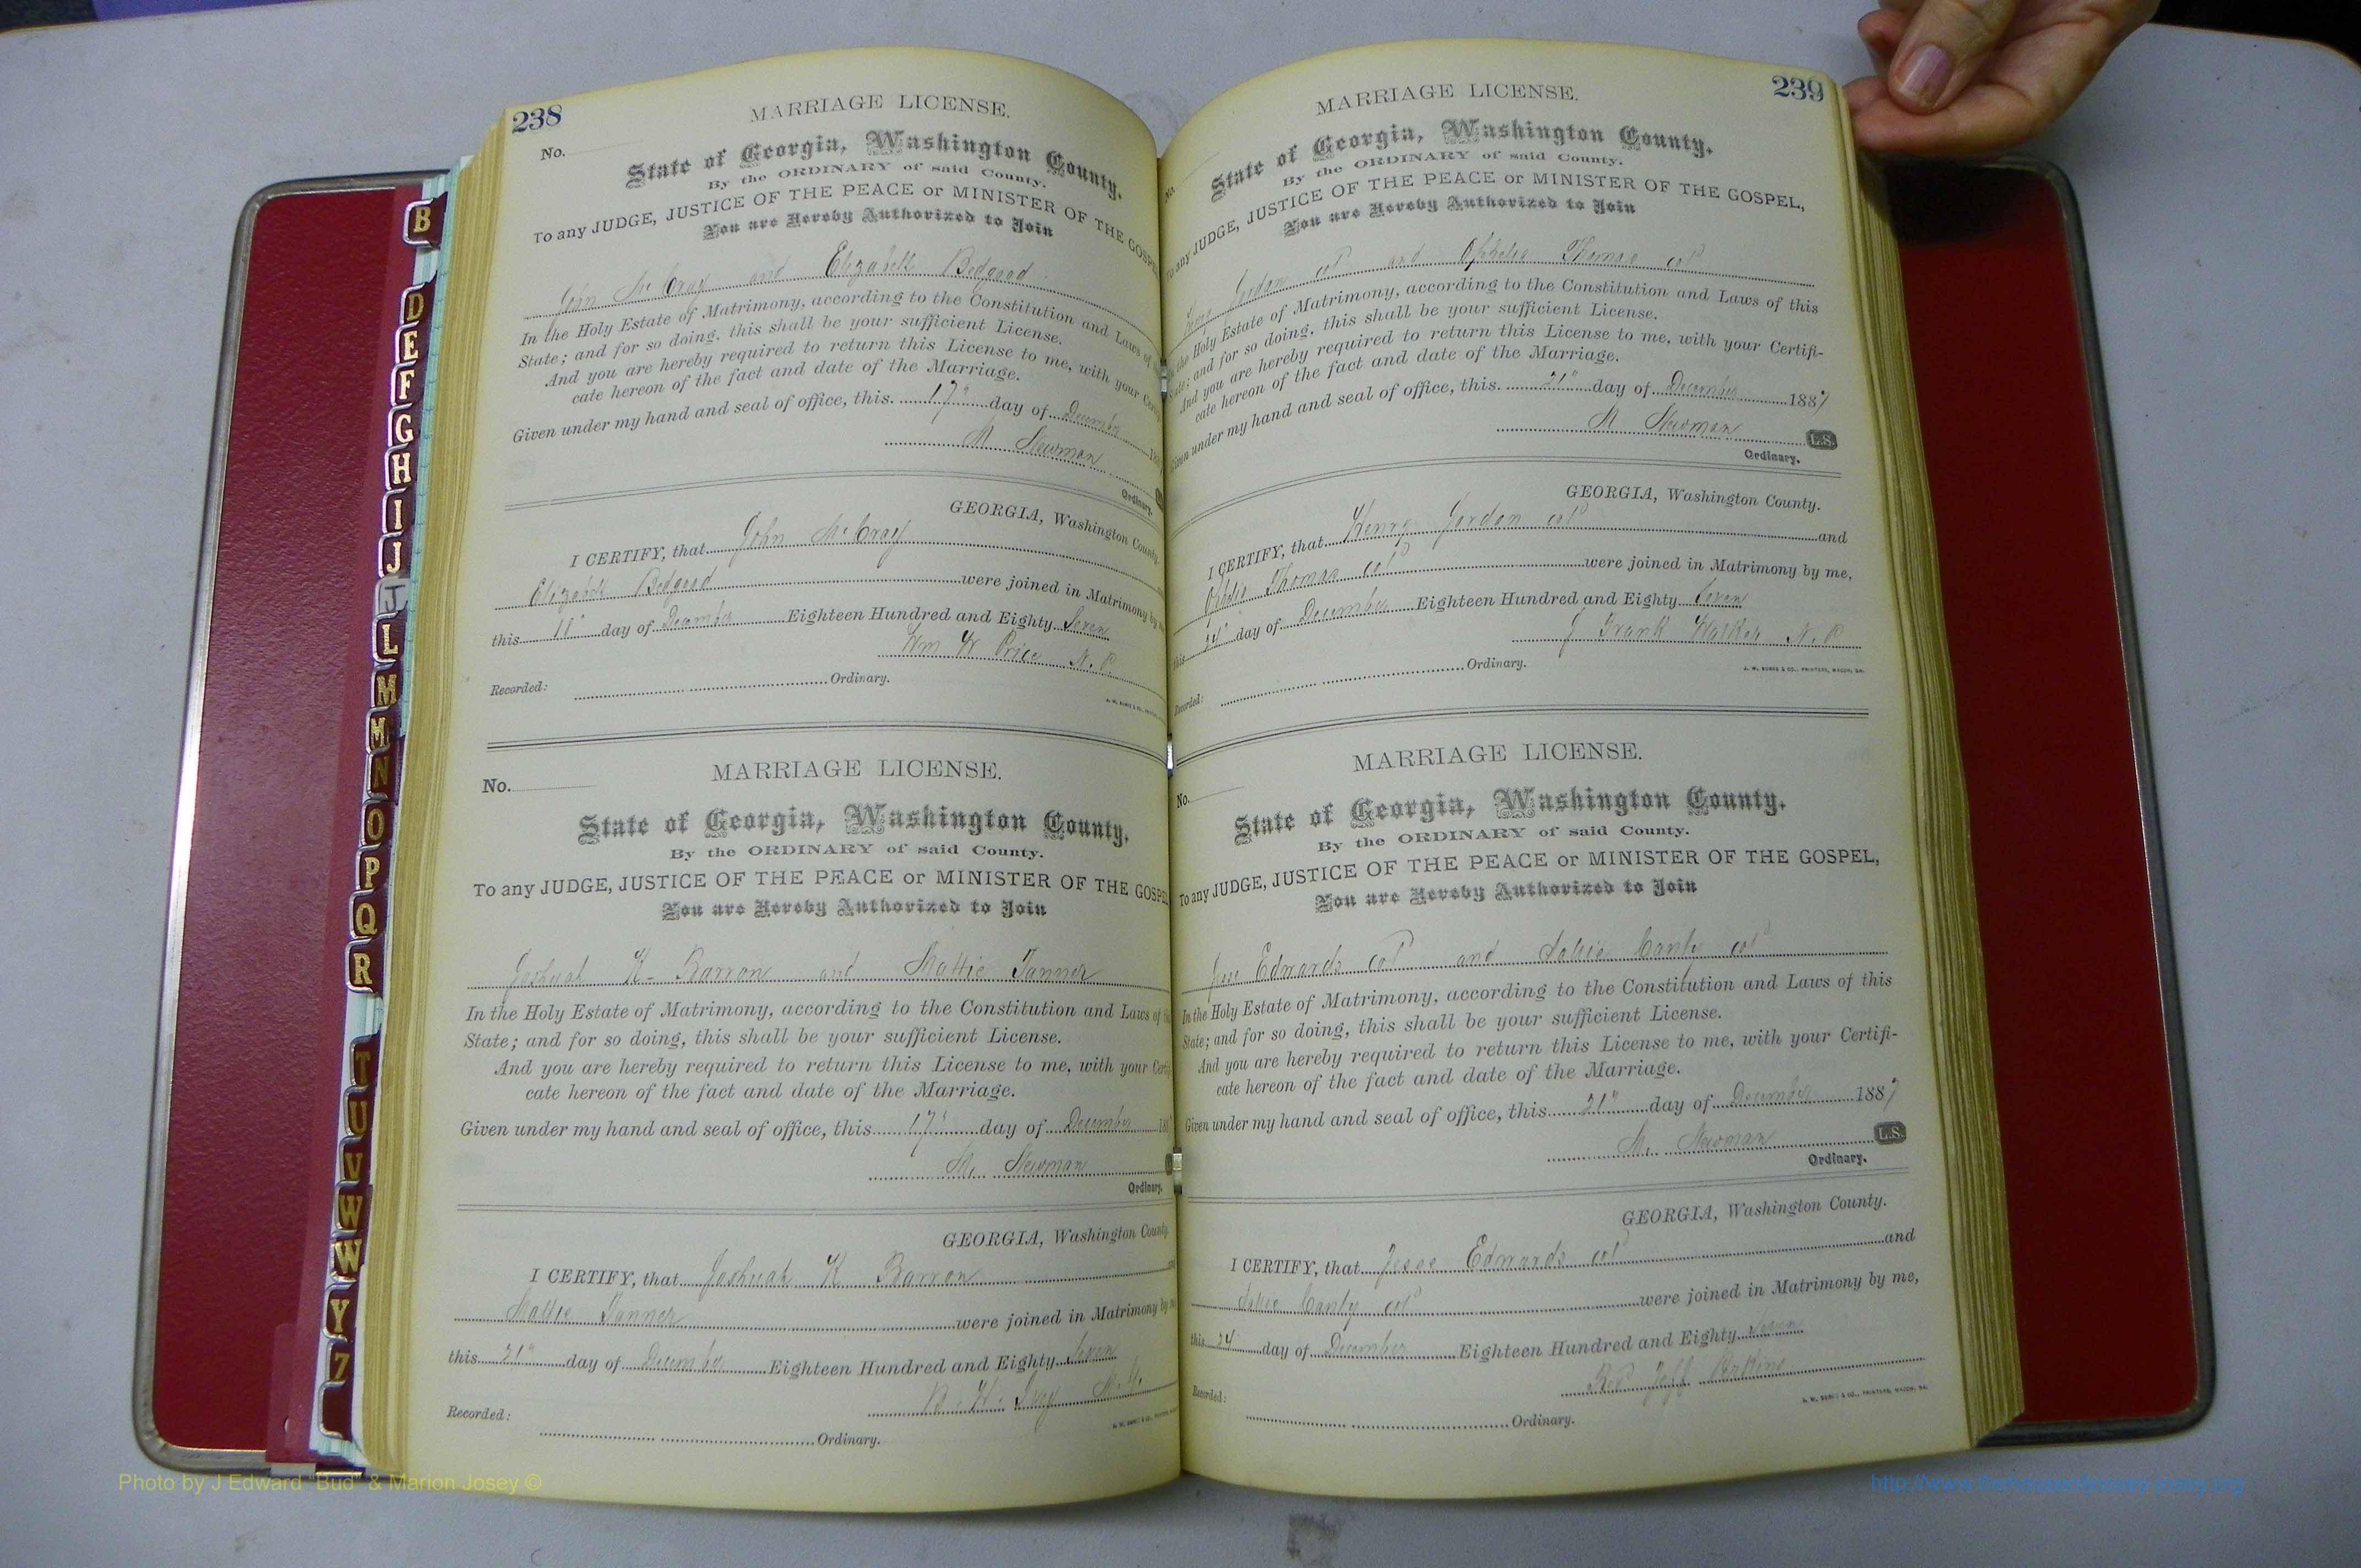 238
MARRIAGE LICENSE.
No.
State of Georgia, Washington County.
By the ORDINARY of said County.
To any JUDGE, JUSTICE OF THE PEACE or MINISTER OF THE GOSPEL
You are Hereby Authorized to Join
John McCray and Elizabeth Bedgood
In the Holy Estate of Matrimony, according to the Constitution and Laws of
State; and for so doing, this shall be your sufficient License.
And you are hereby required to return this License to me, with your
cate hereon of the fact and date of the Marriage.
Given under my hand and seal of office, this 17" day of December
M Newman
Ordinary.
GEORGIA, Washington County.
I CERTIFY, that John McCray
Elizabeth Bedgood were joined in Matrimony by
this 18" day of December Eighteen Hundred and Eighty Seven
Wm W Price N.P.
Recorded: Ordinary.
MARRIAGE LICENSE.
No.
State of Georgia, Washington County.
By the ORDINARY of said County.
To any JUDGE, JUSTICE OF THE PEACE or MINISTER OF THE GOSPEL
You are Hereby Authorized to Join
Joshuah K. Barron and Mattie Tanner
In the Holy Estate of Matrimony, according to the Constitution and Laws of
State; and for so doing, this shall be your sufficient License.
And you are hereby required to return this License to me, with your
cate hereon of the fact and date of the Marriage.
Given under my hand and seal of office, this 17" day of December
M. Newman
Ordinary.
GEORGIA, Washington County
I CERTIFY, that Joshuah K Barron
Mattie Tanner were joined in Matrimony by
this 21" day of December Eighteen Hundred and Eighty Seven
M. G.
Recorded:
Ordinary.
239
MARRIAGE LICENSE.
No.
State of Georgia, Washington County.
By the ORDINARY of said County.
To any JUDGE, JUSTICE OF THE PEACE or MINISTER OF THE GOSPEL,
You are Hereby Authorized to Join
Jordan cold and Ophelia Thomas cold
the Holy Estate of Matrimony, according to the Constitution and Laws of this
and for so doing, this shall be your sufficient License.
And you are hereby required to return this License to me, with your Certifi-
cate hereon of the fact and date of the Marriage.
Given under my hand and seal of office, this 21" day of December 1887
M Newman L.S.
Ordinary.
GEORGIA, Washington County.
I CERTIFY, that Henry Jordan cold and
Thomas cold were joined in Matrimony by me,
this 24" day of December Eighteen Hundred and Eighty Seven
J Frank Walker N.P.
Recorded: Ordinary.
J. W. BURKE & CO., PRINTERS, MACON, GA.
MARRIAGE LICENSE.
No.
State of Georgia, Washington County.
By the ORDINARY of said County.
To any JUDGE, JUSTICE OF THE PEACE or MINISTER OF THE GOSPEL,
You are Hereby Authorized to Join
Jesse Edwards cold and Sallie Canty cold
In the Holy Estate of Matrimony, according to the Constitution and Laws of this
State; and for so doing, this shall be your sufficient License.
And you are hereby required to return this License to me, with your Certifi-
cate hereon of the fact and date of the Marriage.
Given under my hand and seal of office, this 21" day of December 1887
M. Newman L.S.
Ordinary.
GEORGIA, Washington County.
I CERTIFY, that Jesse Edwards cold and
Sallie Canty cold were joined in Matrimony by me,
this 24 day of December Eighteen Hundred and Eighty Seven
Rev Jeff Perkins
Recorded: Ordinary.
J. W. BURKE & CO., PRINTERS, MACON, GA.
B
D
E
F
G
H
I
J
J
L
M
M
N
O
P
Q
R
T
U
V
W
W
Y
Z
Photo by J Edward "Bud" & Marion Josey ©